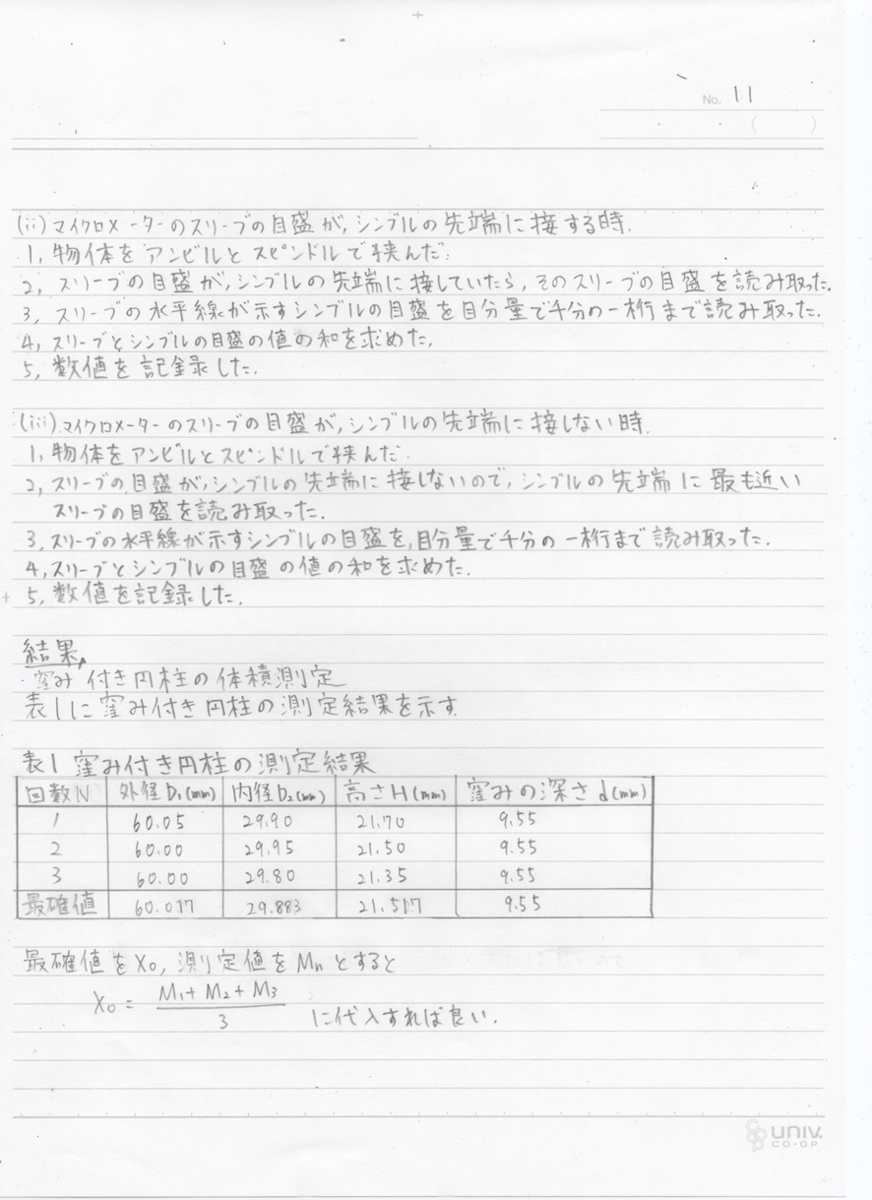 No. 11
( )
(ii) マイクロメーターのスリーブの目盛が,シンブルの先端に接する時.
1, 物体をアンビルとスピンドルで挟んだ.
2, スリーブの目盛が,シンブルの先端に接していたら,そのスリーブの目盛を読み取った.
3, スリーブの水平線が示すシンブルの目盛を目分量で千分の一桁まで読み取った.
4, スリーブとシンブルの目盛の値の和を求めた.
5, 数値を記録した.
(iii).マイクロメーターのスリーブの目盛が,シンブルの先端に接しない時.
1, 物体をアンビルとスピンドルで挟んだ.
2, スリーブの目盛が,シンブルの先端に接しないので,シンブルの先端に最も近い
スリーブの目盛を読み取った.
3, スリーブの水平線が示すシンブルの目盛を,目分量で千分の一桁まで読み取った.
4, スリーブとシンブルの目盛の値の和を求めた.
5, 数値を記録した.
結果,
・窪み付き円柱の体積測定
表1に窪み付き円柱の測定結果を示す.
表1 窪み付き円柱の測定結果
回数N 外径D₁(mm) 内径D₂(mm) 高さH(mm) 窪みの深さd(mm)
1 60.05 29.90 21.70 9.55
2 60.00 29.95 21.50 9.55
3 60.00 29.80 21.35 9.55
最確値 60.017 29.883 21.517 9.55
最確値をX₀, 測定値をMnとすると
X₀ = (M₁+M₂+M₃)/3 に代入すれば良い.
UNIV.
CO-OP